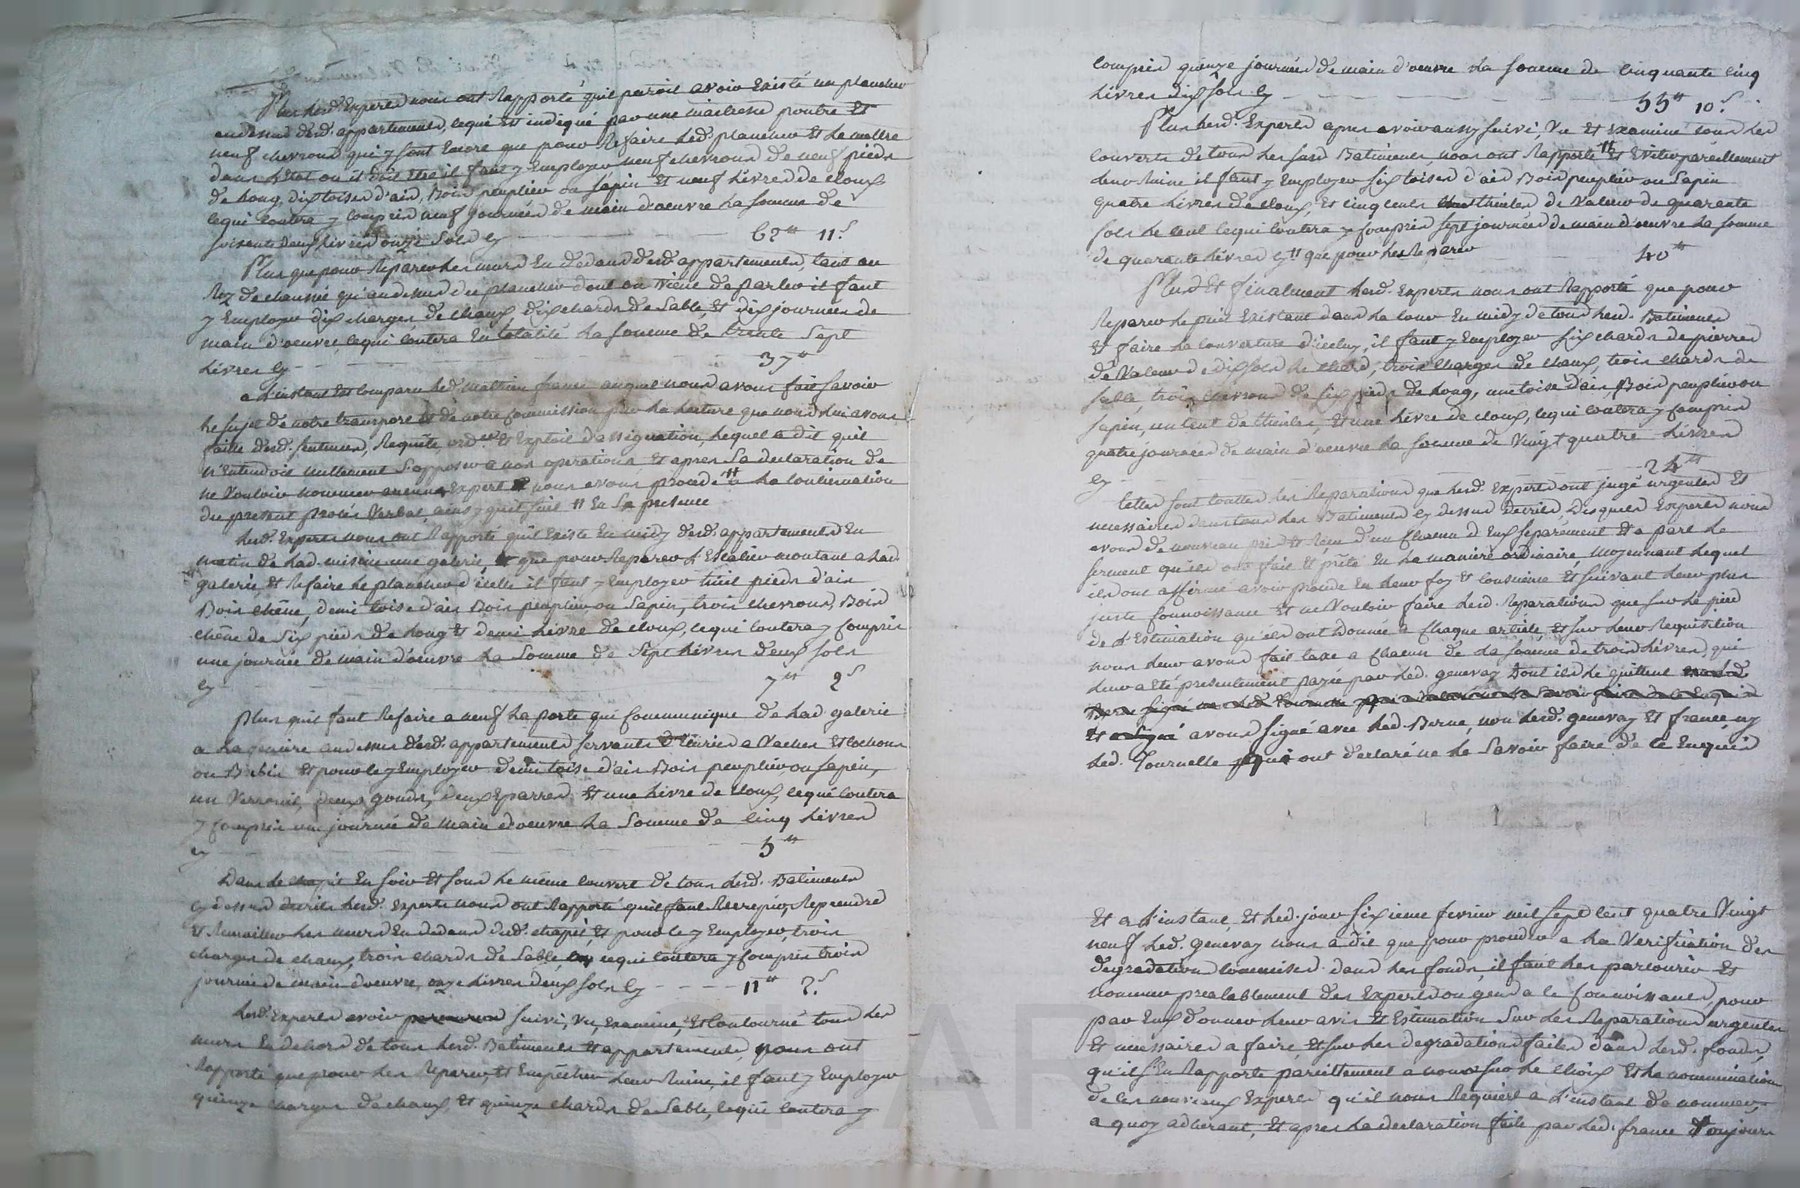 Plus lesd. Experts nous ont Rapporté qu'il paroit avoir Existé un plancher
audessus desd. appartements, lequel Est indiqué par une maitresse poutre Et
neuf chevrons qui y sont Encore que pour Refaire led. plancher Et le mettre
dans l'état ou il doit être il faut y Employer neuf chevrons de neuf pieds
de long, dix toises d'ais, Bois peuplier ou sapin Et neuf Livres de cloux
lequel coutera y compris neuf journées de main d'oeuvre la somme de
soixante deux Livres onze sols cy 62 ₶ 11 s.
Plus que pour Reparer les murs En dedans desd. appartements, tant au
Rez de chaussée qu'audessus du plancher dont on vient de parler il faut
y Employer dix charges de chaux, dix chards de sable, Et dix journées de
main d'oeuvre, lequel coutera En totalité la somme de trente Sept
Livres cy 37 ₶
a l'instant Est comparu led. Mathieu france auquel nous avons fait savoir
le sujet de notre transport Et de notre commission par la lecture que nous lui avons
faitte desd. sentences, Requête, ord.ce Et Exploit d'assignation, lequel a dit qu'il
n'Entendoit nullement s'opposer a nos operations Et apres sa declaration de
ne Vouloir nommer aucuns Expert nous avons procédé ₶ a la continuation
du present procès Verbal, ainsy qu'il suit ₶ En sa presence
Lesd. Experts nous ont Rapporté qu'il Existe En midy desd. appartements En
matin de lad. cuisine une galerie, Et que pour Reparer l'Escalier montant a lad.
galerie, Et Refaire le plancher d'icelle il faut y Employer huit pieds d'ais
Bois chêne, demi toise d'ais Bois peuplier ou Sapin, trois chevrons, Bois
chêne de Six pieds de long Et demi Livre de cloux, lequel coutera y compris
une journée de main d'oeuvre la Somme de Sept Livres deux sols
cy 7 ₶ 2 s
Plus qu'il faut Refaire a neuf la porte qui communique de lad galerie
a la geniere audessus desd. appartements servants d'Ecuries a Vaches Et cochons
ou Brebis Et pour le y Employer demi toise d'ais Bois peuplier, ou sapin,
un Verrouil, deux gonds, deux Eparres Et une Livre de cloux, lequel coutera
y compris une journée de main d'oeuvre la Somme de cinq Livres
cy 5 ₶
Dans le chapit En soir Et sous le même couvert de tous lesd. Batiments
cy dessus décrits lesd. Experts nous ont Rapporté qu'il faut Recrepir, Reprendre
Et Remailler les murs En dedans dud. chapit, Et pour le y Employer, trois
charges de chaux, trois chards de Sable, lequel coutera y compris trois
journée de main d'oeuvre, onze Livres deux sols cy 11 ₶ 2 s.
Lesd. Experts avoir suivi, Vu, Examiné, Et Contourné tous les
murs En dehors de tous lesd. Batiments Et appartements nous ont
Rapporté que pour les Reparer, Et Empêcher leur Ruine, il faut y Employer
quinze charges de chaux Et quinze chards de Sable, lequel coutera y
compris quinze journées de main d'oeuvre La somme de cinquante cinq
Livres dix sols cy 55 ₶ 10 s.
Plus lesd. Experts apres avoir aussy suivi, Vu Et Examiné tous les
couverts de tous les susd Batiments, nous ont Rapporté ₶ Et Eviter pareillement
leur Ruine il faut y Employer six toises d'ais Bois peuplier ou Sapin
quatre Livres de cloux, Et cinq cents thuiles de Valeur de quarante
sols le cent lequel coutera y compris sept journées de main d'oeuvre la somme
de quarante Livres cy ₶ que pour les Reparer 40 ₶
Plus Et finalement lesd. Experts nous ont Rapporté que pour
Reparer le puit Existant dans la cour En midy de tous lesd. Batiments
Et faire la couverture d'icelui, il faut y Employer six chards de pierres
de Valeur de dix sols le chard, trois charges de chaux, trois chards de
sable, trois chevrons de six pieds de long, une toise d'ais, Bois peuplier ou
sapin, un cent de thuiles Et une Livre de cloux, lequel coutera y compris
quatre journées de main d'oeuvre la somme de Vingt quatre Livres
cy 24 ₶
telles sont touttes les Reparations que lesd. Experts ont jugé urgentes Et
necessaires dans tous les Batiments cy dessus décrits, Desquels Experts nous
avons de nouveau pris Et Reçu d'un chacun d'Eux separément Et a part le
serment qu'ils ont fait Et prêté En la maniere ordinaire, moyennant lequel
ils ont affirmé avoir procédé En leur foy Et consience Et suivant leur plus
juste connoissance Et ne Vouloir faire lesd. Reparations que sur le pied
de l'Estimation qu'ils ont Donnée a chaque article, Et sur leur Requisition
nous leur avons fait taxe a chacun de la somme de trois Livres, qui
leur a été presentement payée par led. genevay Dont ils le quittent
Et avons signé avec led. Berne, non lesd. genevay Et france, ny
led. Tournelle qui ont declaré ne le savoir faire de ce Enquis
Et a l'instant, Et led. jour sixieme fevrier mil sept cent quatre Vingt
neuf led. genevay nous a dit que pour proceder a la Verification des
degradations commises dans les fonds, il faut les parcourir Et
nommer prealablement des Experts ou gens a ce connoissants, pour
par Eux donner leur avis Et Estimation sur les Reparations urgentes
Et necessaires a faire, Et sur les degradations faites dans lesd. fonds,
qu'il s'En Rapporte pareillement a nous sur le choix Et la nomination
de ces nouveaux Experts qu'il nous Requiert a l'instant de nommer,
a quoy adherant, Et apres la declaration faite par led. france Toujours